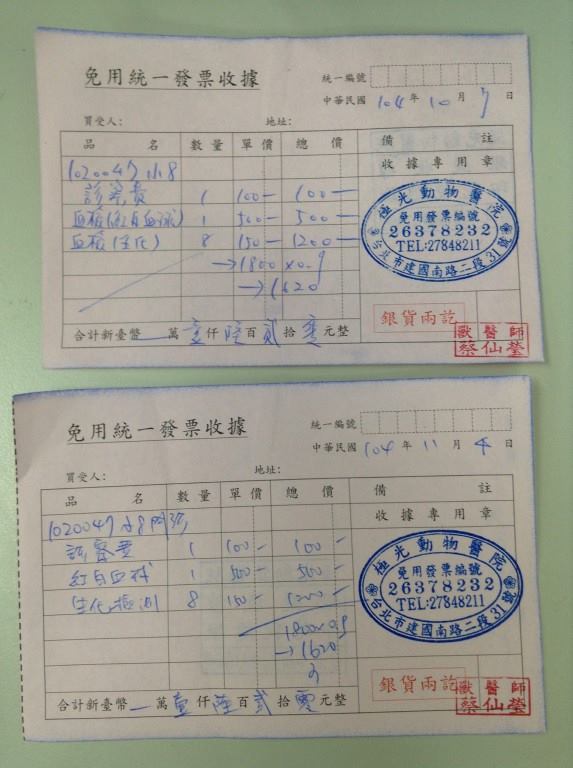 免用統一發票收據
統一編號
中華民國 104 年 10 月 7 日
買受人： 地址：
品名 數量 單價 總價 備註
收據專用章
1020047 小8
診察費 1 100— 100—
血檢(紅白血球) 1 500— 500—
血檢(生化) 8 150— 1200—
→1800×0.9
→1620
極光動物醫院
免用發票編號
26378232
TEL:27848211
台北市建國南路二段31號
銀貨兩訖
獸醫師
蔡仙瑩
合計新臺幣 萬壹仟陸百貳拾零元整
免用統一發票收據
統一編號
中華民國 104 年 11 月 4 日
買受人： 地址：
品名 數量 單價 總價 備註
收據專用章
1020047 小8
診察費 1 100— 100—
紅白血球 1 500— 500—
生化檢測 8 150— 1200—
1800×0.9
→1620
極光動物醫院
免用發票編號
26378232
TEL:27848211
台北市建國南路二段31號
銀貨兩訖
獸醫師
蔡仙瑩
合計新臺幣 萬壹仟陸百貳拾零元整